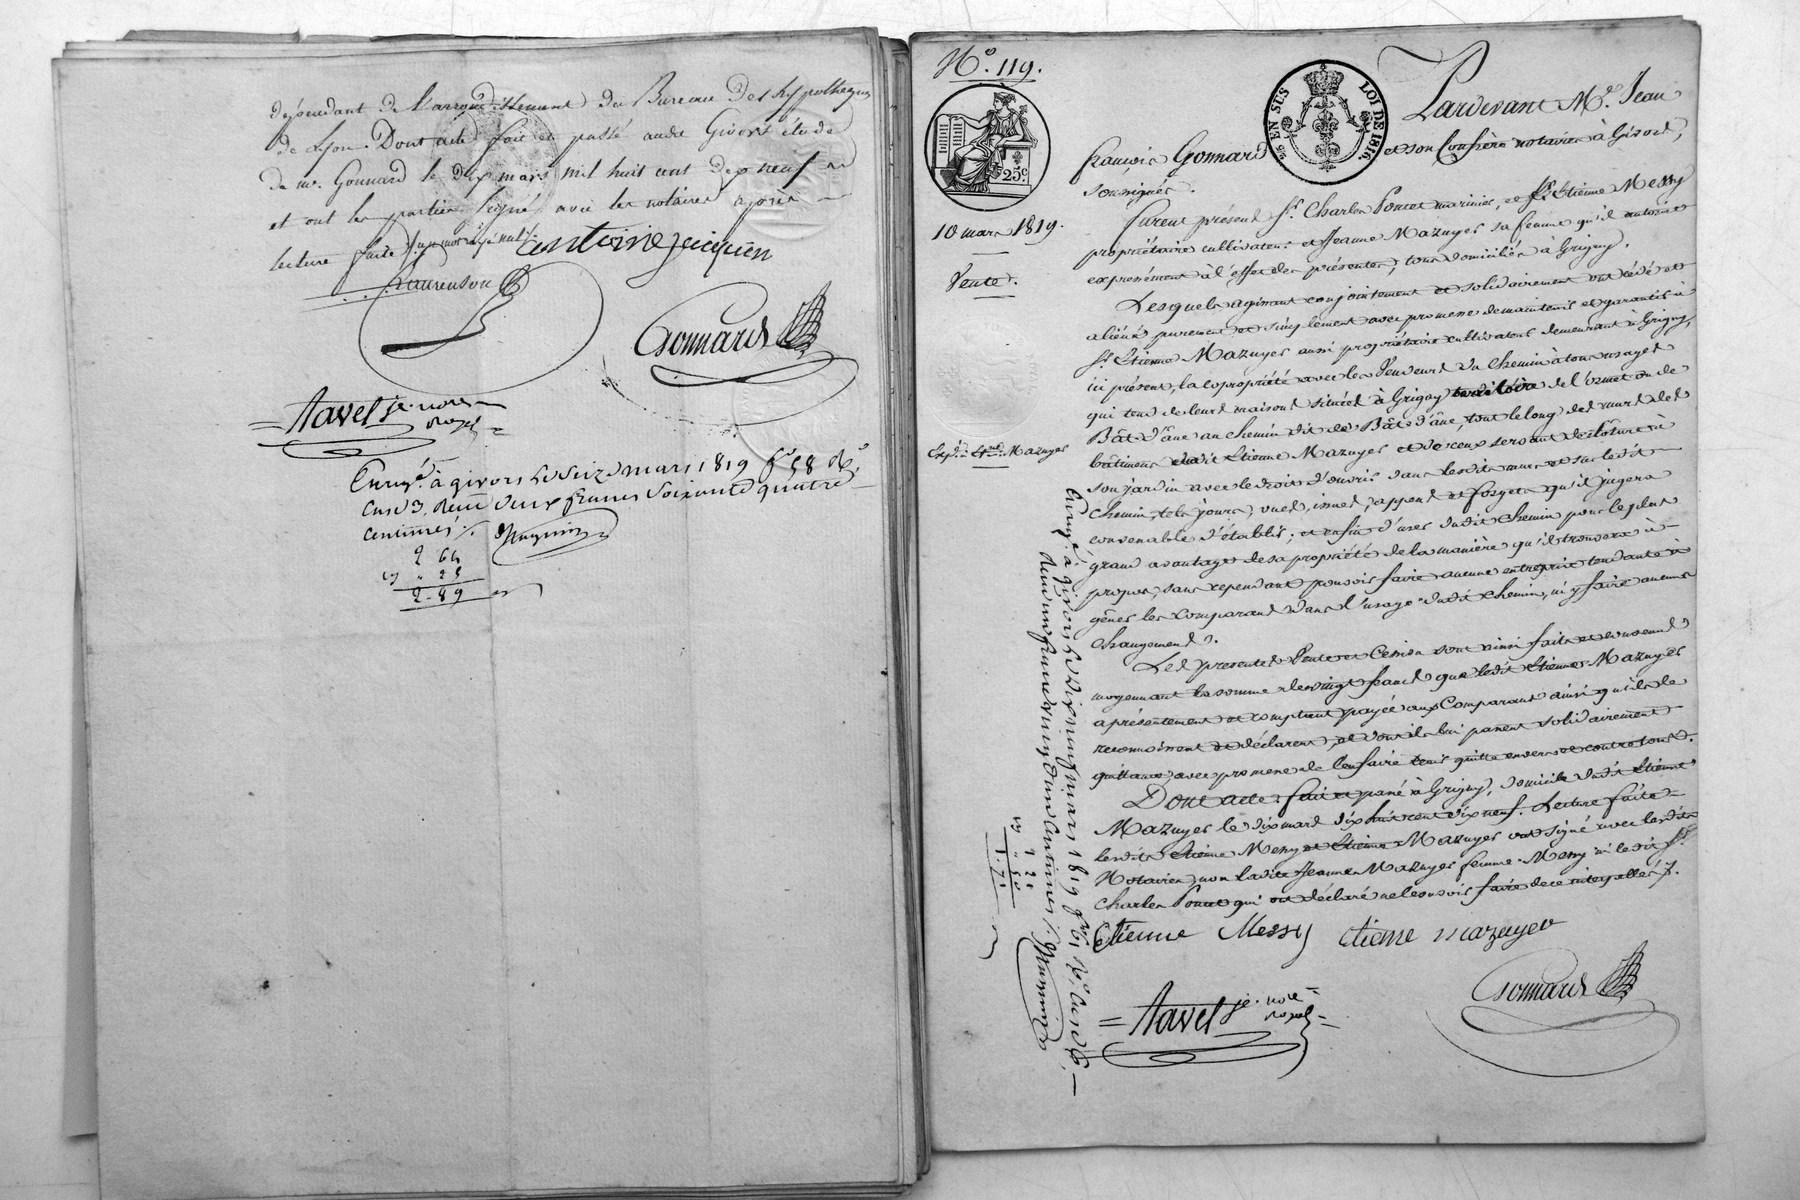 dépendant de l'arrondissement du Bureau des hypothèques
de Lyon. Dont acte fait et passé audit Givors étude
de me. Gonnard le dix mars mil huit cent dix neuf
et ont les parties signé avec les notaires après
lecture faite
antoine jacquien
Laurenson
Gonnard
Tavel je. nore
royal
Enregé. à givors le seize mars 1819 fo. 58 Ro.
Case 3. Reçu deux francs soixante quatre
centimes
2 64
25
2.89
No. 119.
25 EN SUS
LOI DE 1816
25c.
10 mars 1819.
Vente.
Expd. à Ene. Mazuyer
Pardevant Me. Jean
françois Gonnard et son Confrère notaires à Givors,
soussignés.
furent présens Sr. Charles Poncet marinier, et Sr. Etienne Messy
propriétaire cultivateur et Jeanne Mazuyer sa femme qu'il autorise
expressément à l'effet des présentes, tous domiciliés à Grigny.
Lesquels agissant conjointement et solidairement ont cédé et
aliéné purement et simplement avec promesse de maintenir et garantir à
Sr. Etienne Mazuyer aussi propriétaire cultivateur demeurant à Grigny,
ici présent, la copropriété avec les Vendeurs du chemin à tous usages
qui tend de leurs maisons situées à Grigny territoire de l'ormet ou de
Bât-d'âne au chemin dit de Bât-d'âne, tout le long des murs des
bâtimens dudit Etienne Mazuyer et de ceux servant de clôture à
son jardin avec le droit d'ouvrir dans lesdits murs et sur ledit
chemin, tels jours, vues, issues, append et forgets qu'il jugera
convenable d'établir; et enfin d'user dudit chemin pour le plus
grand avantage de sa propriété de la manière qu'il trouvera à
propos, sans cependant pouvoir faire aucune entreprise tendante à
gêner les comparans dans l'usage dudit chemin, ni y faire aucuns
changemens.
Les présentes Vente et Cession sont ainsi faites et consenties
moyennant la somme de vingt francs que ledit Etienne Mazuyer
a présentement et comptant payée aux Comparans ainsi qu'ils le
reconnoissent et déclarent, et dont ils lui passent solidairement
quittance, avec promesse de l'en faire tenir quitte envers et contre tous.
Dont acte: fait et passé à Grigny, domicile dudit Etienne
Mazuyer le dix mars dix huit cent dix neuf. Lecture faite
lesdits Etienne Messy et Etienne Mazuyer ont signé avec lesdits
Notaires, non ladite Jeanne Mazuyer femme Messy ni ledit Sr.
Charles Poncet qui ont déclaré ne le savoir faire de ce interpellés.
Etienne Messy etiene mazuyer
Gonnard
Tavel je. nore
royal
Enregé. à givors le dix neuf mars 1819 fo. 61 Ro. Case 6.
Reçu un franc vingt un centimes